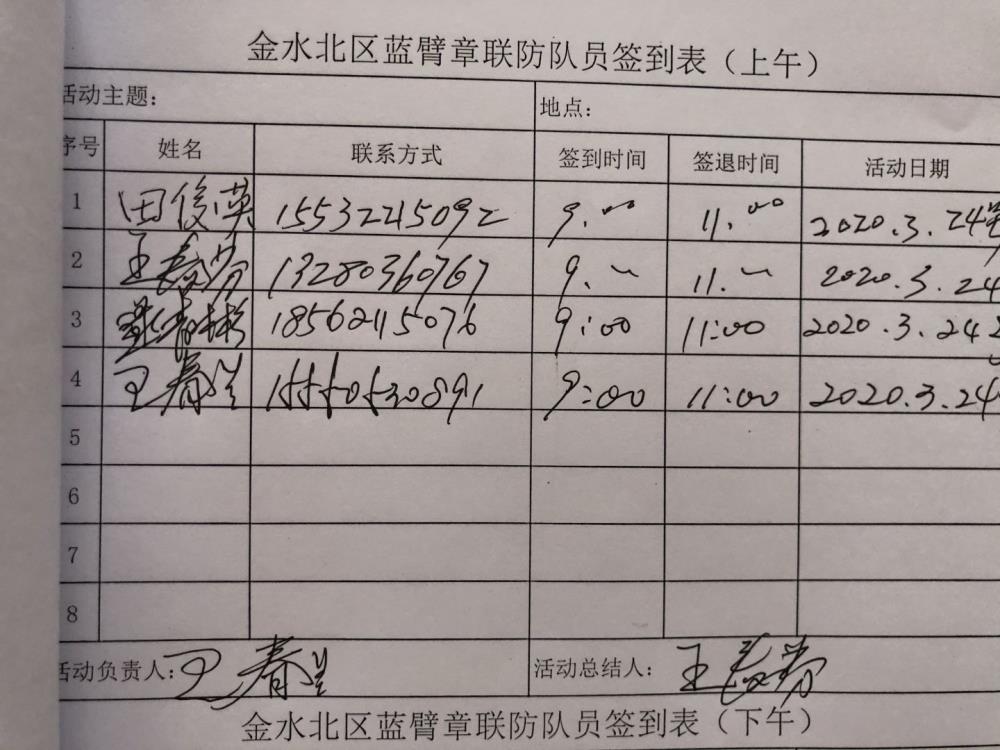 金水北区蓝臂章联防队员签到表（上午）
活动主题： 地点：
序号 姓名 联系方式 签到时间 签退时间 活动日期
1 田俊英 15532245092 9:00 11:00 2020.3.24
2 王春芳 13280360767 9. 〃 11. 〃 2020.3.24
3 18562115076 9:00 11:00 2020.3.24
4 王春兰 15550530891 9:00 11:00 2020.3.24
5
6
7
8
活动负责人：王春兰 活动总结人：王春芳
金水北区蓝臂章联防队员签到表（下午）